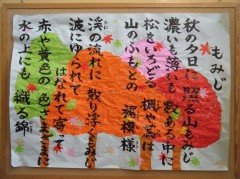 もみじ
秋の夕日に 照る山もみじ
濃いも薄いも 数ある中に
松をいろどる 楓や蔦は
山のふもとの 裾模様
渓の流れに 散り浮くもみじ
波にゆられて はなれて寄って
赤や黄色の 色さまざまに
水の上にも 織る錦